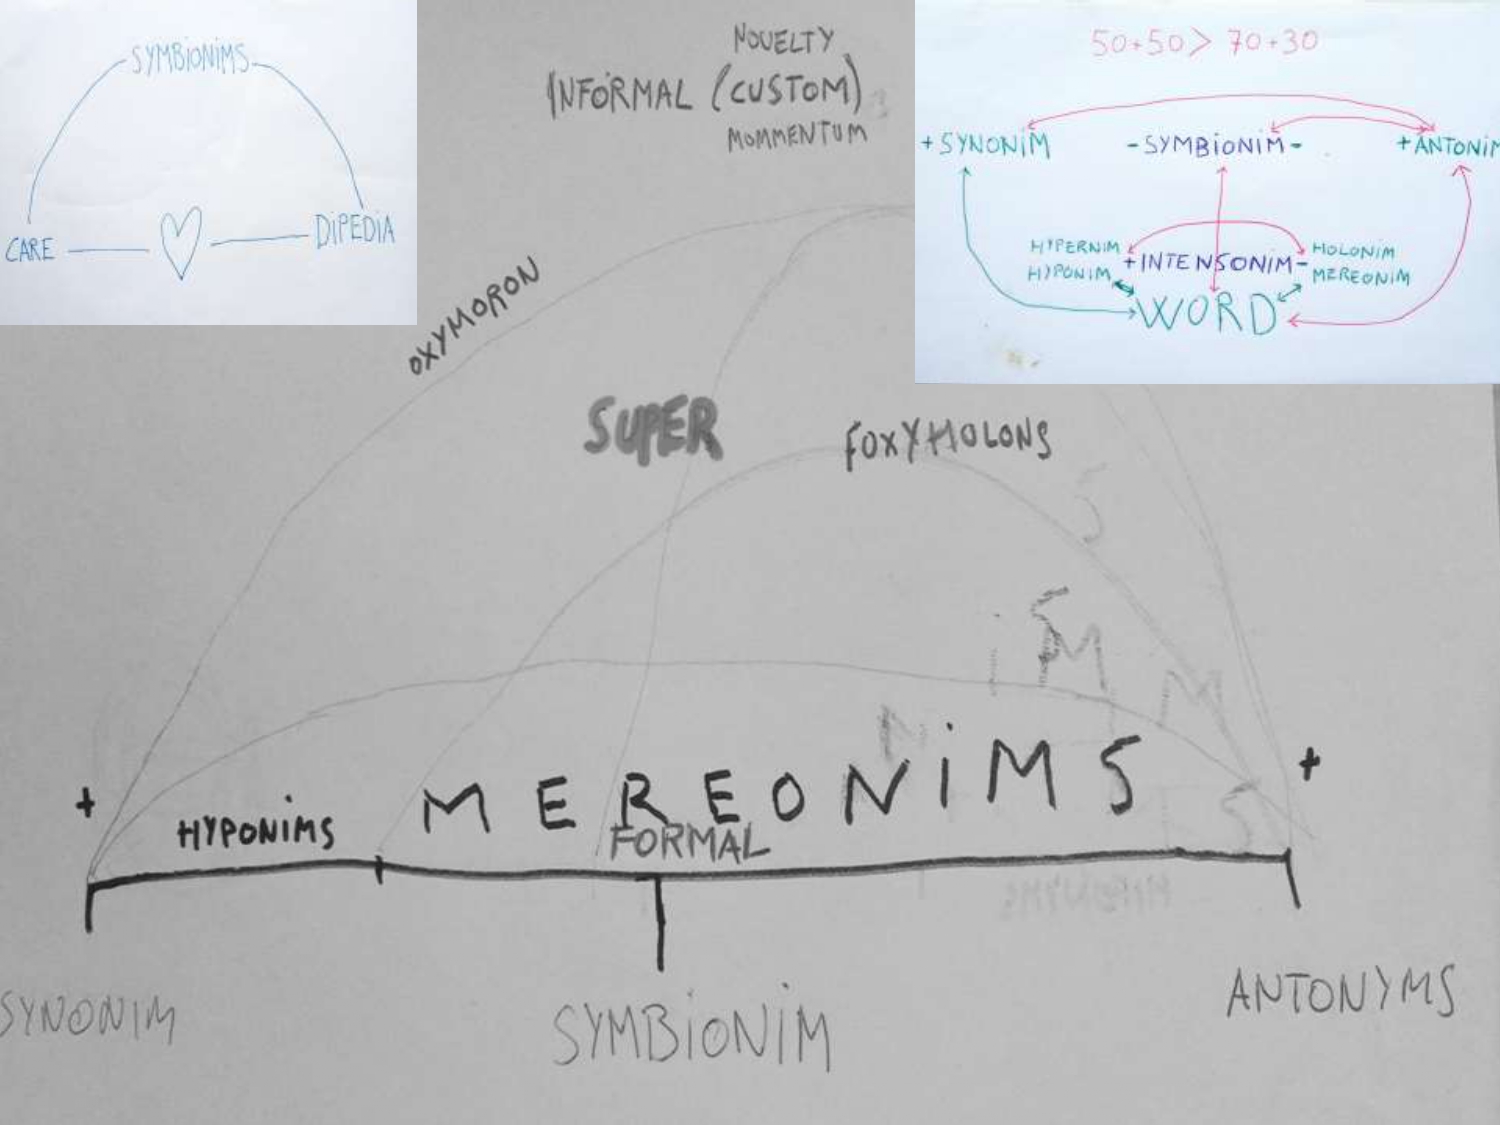 SYMBiONiMS
CARE
DiPEDiA
NOVELTY
INFORMAL (CUSTOM)
MOMMENTUM
50+50 > 70+30
+ SYNONiM
- SYMBiONiM -
+ ANTONiM
HYPERNiM
HYPONiM
+ INTENSONiM -
HOLONiM
MEREONiM
WORD
OXYMORON
SUPER
FOXYHOLONS
+
HYPONiMS
MEREONiMS
+
FORMAL
SYNONiM
SYMBiONiM
ANTONYMS